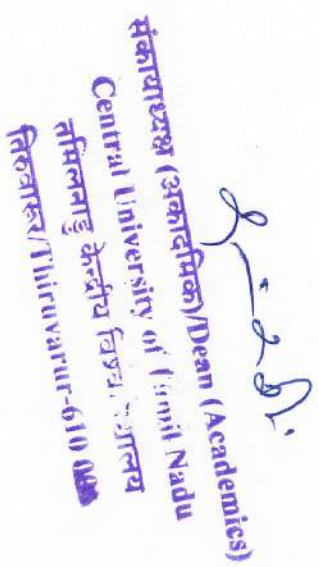 संकायाध्यक्ष (अकादमिक)/Dean (Academics)
Central University of Tamil Nadu
तमिलनाडु केन्द्रीय
तिरुवारूर/Thiruvarur-610